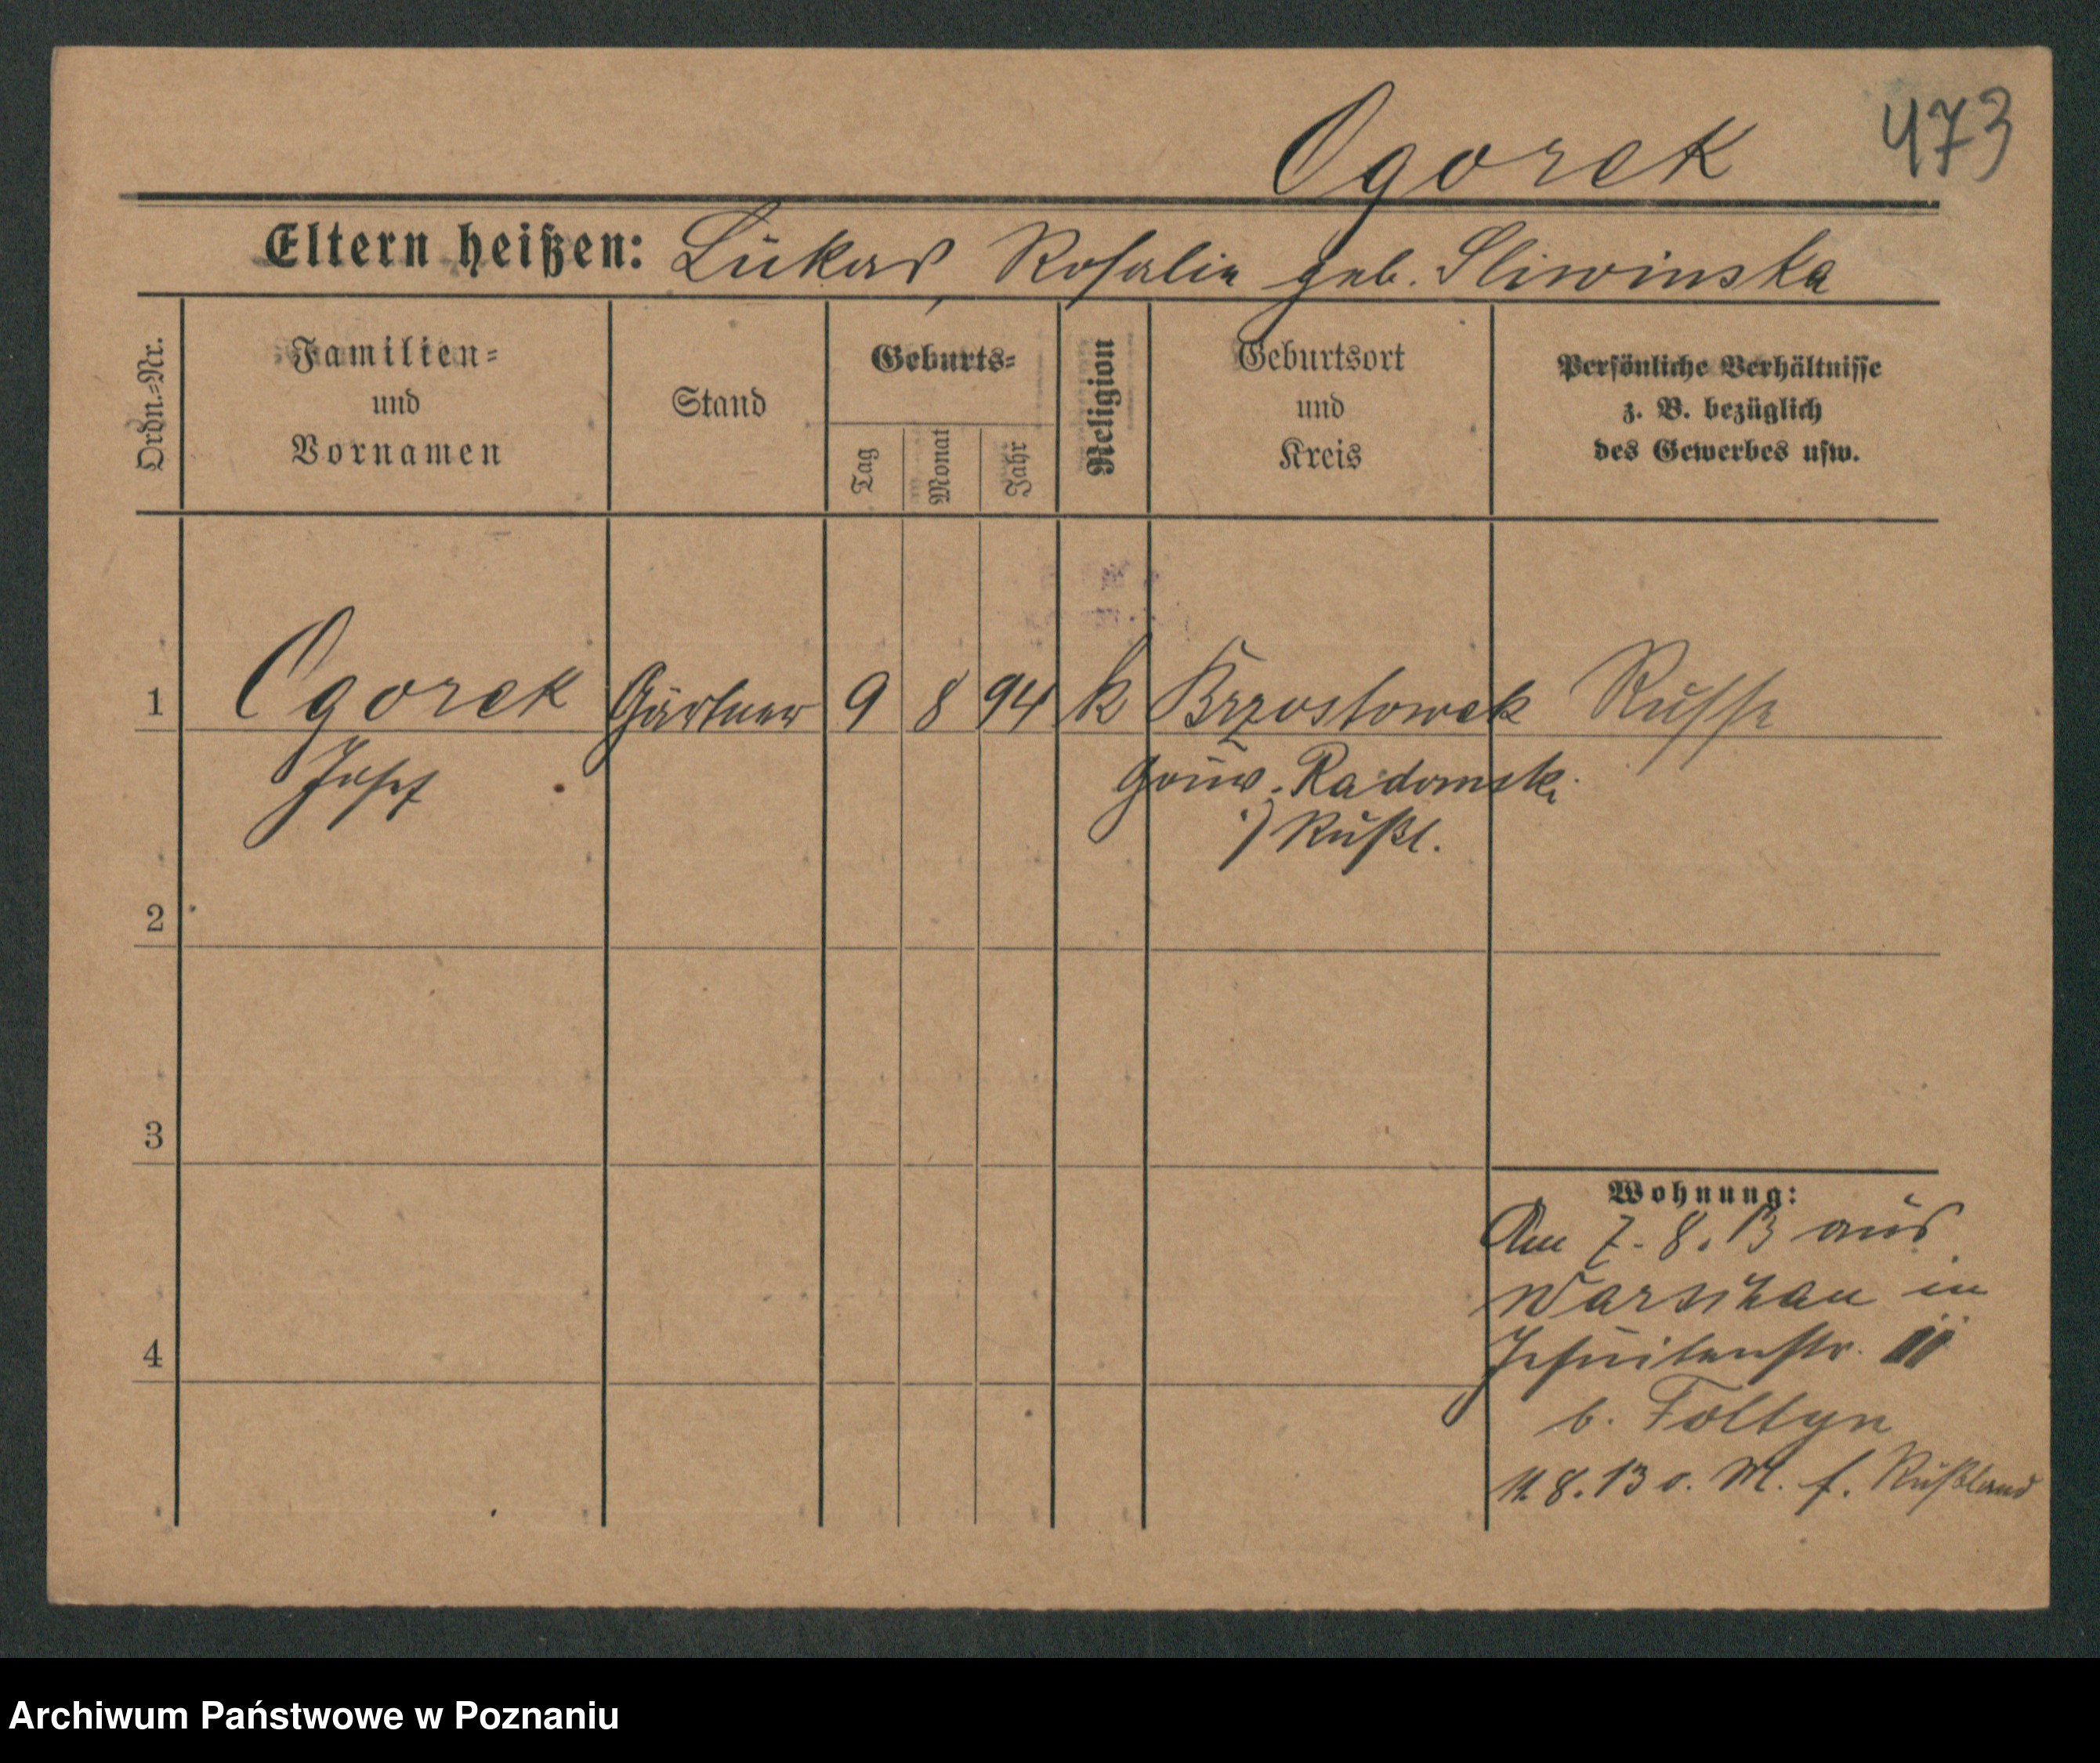 Ogorek 473
Eltern heißen: Lukas, Rosalie geb. Sliwinska
Ordn.-Nr.
Familien-
und
Vornamen
Stand
Geburts-
Tag
Monat
Jahr
Religion
Geburtsort
und
Kreis
Persönliche Verhältnisse
z. B. bezüglich
des Gewerbes usw.
1 Ogorek Gärtner 9 8 94 k Brzostowek Russe
Josef Gouv. Radomski
Rußl.
2
3
4
Wohnung:
Am 7.8.13 aus
Warschau in
Jesuitenstr. 11
b. Foltyn
11.8.13 o. M. f. Rußland
Archiwum Państwowe w Poznaniu